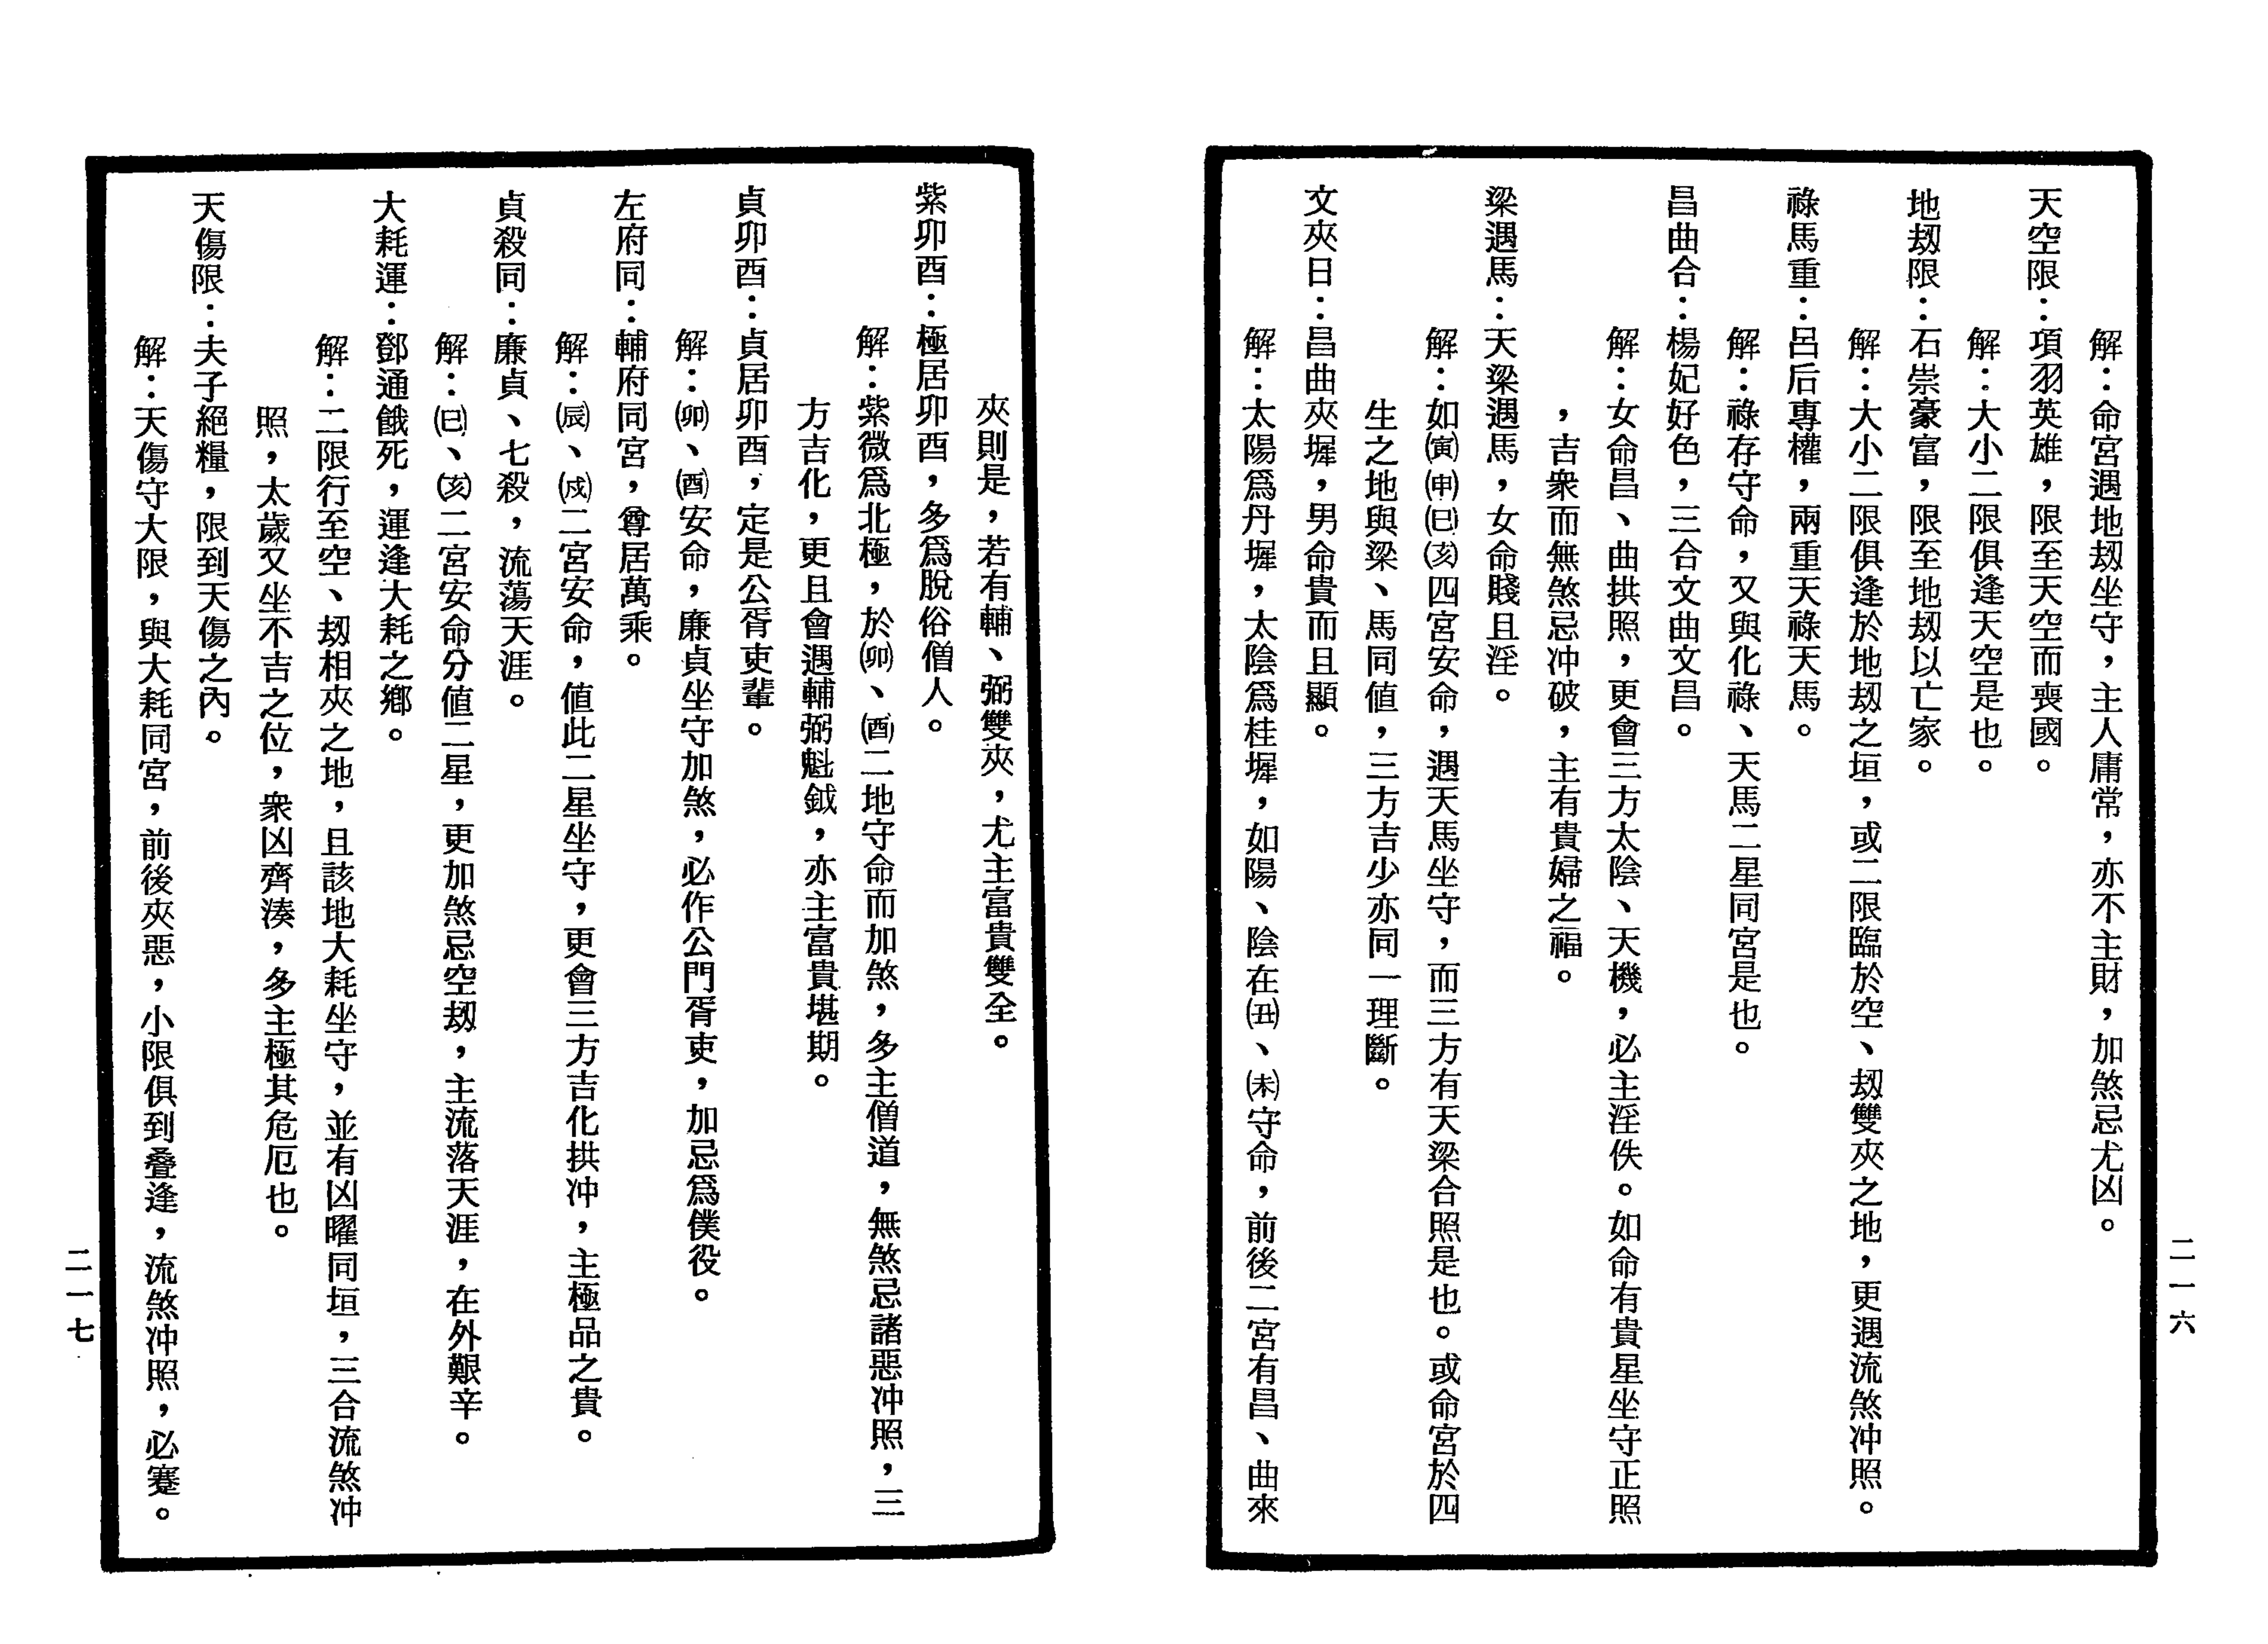 解：命宮遇地刼坐守，主人庸常，亦不主財，加煞忌尤凶。
天空限：項羽英雄，限至天空而喪國。
解：大小二限俱逢天空是也。
地刼限：石崇豪富，限至地刼以亡家。
解：大小二限俱逢於地刼之垣，或二限臨於空、刼雙夾之地，更遇流煞冲照。
祿馬重：呂后專權，兩重天祿天馬。
解：祿存守命，又與化祿、天馬二星同宮是也。
昌曲合：楊妃好色，三合文曲文昌。
解：女命昌、曲拱照，更會三方太陰、天機，必主淫佚。如命有貴星坐守正照
，吉衆而無煞忌冲破，主有貴婦之福。
梁遇馬：天梁遇馬，女命賤且淫。
解：如㈲寅㈲申㈲巳㈲亥四宮安命，遇天馬坐守，而三方有天梁合照是也。或命宮於四
生之地與梁、馬同値，三方吉少亦同一理斷。
文夾日：昌曲夾墀，男命貴而且顯。
解：太陽爲丹墀，太陰爲桂墀，如陽、陰在(丑)、(未)守命，前後二宮有昌、曲來
二一六
夾則是，若有輔、弼雙夾，尤主富貴雙全。
紫卯酉：極居卯酉，多爲脫俗僧人。
解：紫微爲北極，於(卯)、(酉)二地守命而加煞，多主僧道，無煞忌諸惡冲照，三
方吉化，更且會遇輔弼魁鉞，亦主富貴堪期。
貞卯酉：貞居卯酉，定是公胥吏輩。
解：(卯)、(酉)安命，廉貞坐守加煞，必作公門胥吏，加忌爲僕役。
左府同：輔府同宮，尊居萬乘。
解：(辰)、(戍)二宮安命，値此二星坐守，更會三方吉化拱冲，主極品之貴。
貞殺同：廉貞、七殺，流蕩天涯。
解：(巳)、(亥)二宮安命分値二星，更加煞忌空刼，主流落天涯，在外艱辛。
大耗運：鄧通餓死，運逢大耗之鄉。
解：二限行至空、刼相夾之地，且該地大耗坐守，並有凶曜同垣，三合流煞冲
照，太歲又坐不吉之位，衆凶齊湊，多主極其危厄也。
天傷限：夫子絕糧，限到天傷之內。
解：天傷守大限，與大耗同宮，前後夾惡，小限俱到叠逢，流煞冲照，必蹇。
二一七